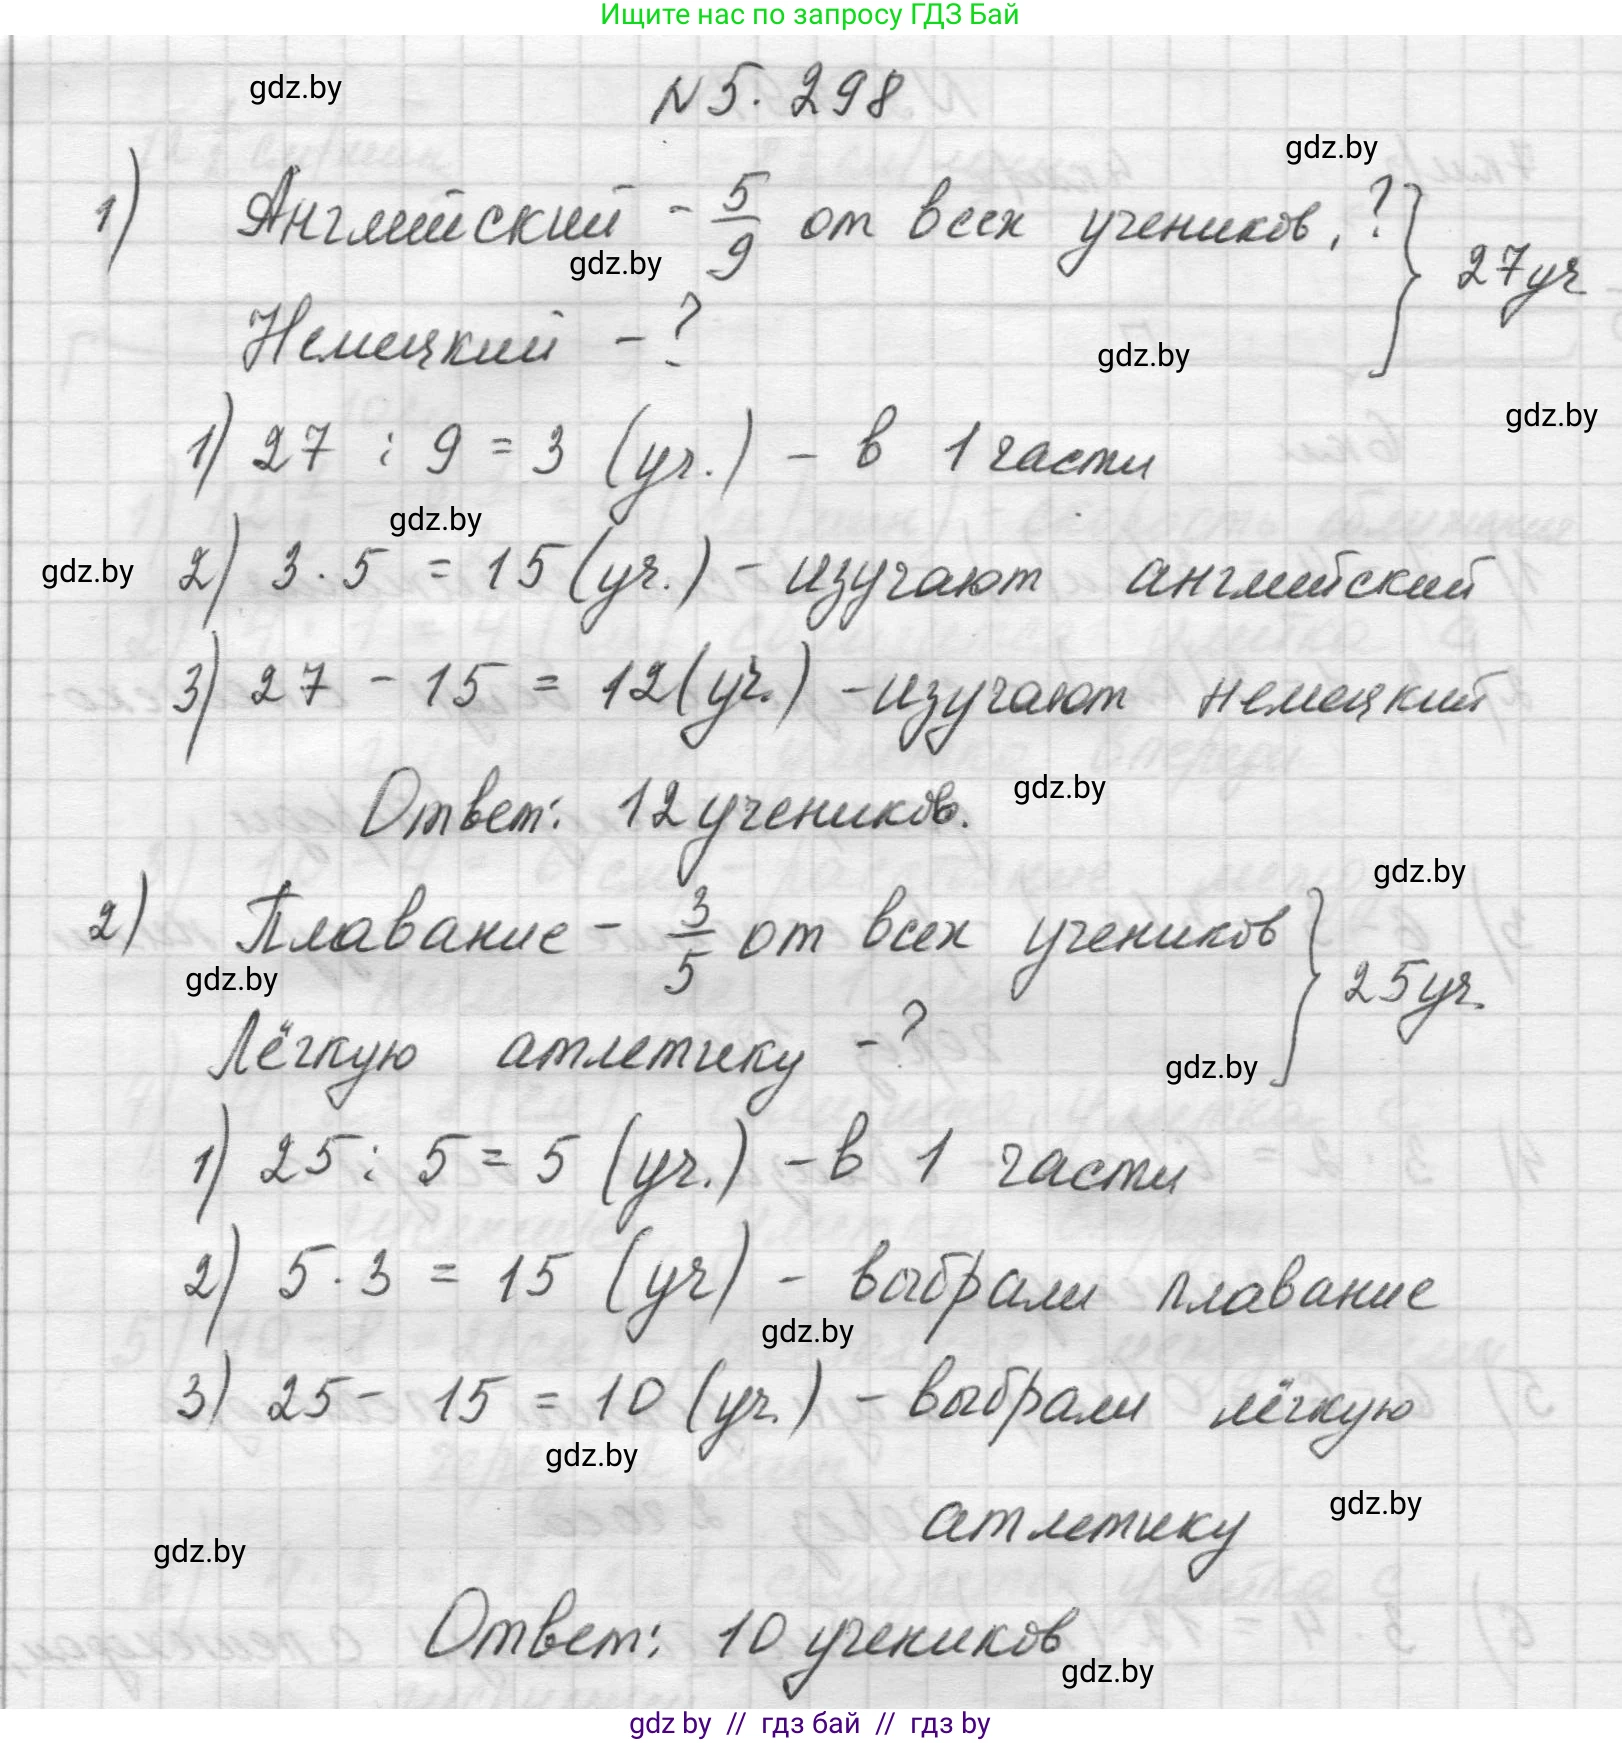 Ищите нас по запросу ГДЗ Бай
gdz.by
N 5. 298
gdz.by
1) Английский - 5/9 от всех учеников, ? } 27 уч
gdz.by
Немецкий - ?
gdz.by
gdz.by
1) 27 : 9 = 3 (уч.) - в 1 части
gdz.by
gdz.by
2) 3 · 5 = 15 (уч.) - изучают английский
3) 27 - 15 = 12 (уч.) - изучают немецкий
gdz.by
Ответ: 12 учеников.
gdz.by
2) Плавание - 3/5 от всех учеников } 25 уч.
gdz.by
Лёгкую атлетику - ?
gdz.by
1) 25 : 5 = 5 (уч.) - в 1 части
2) 5 · 3 = 15 (уч) - выбрали плавание
gdz.by
3) 25 - 15 = 10 (уч.) - выбрали лёгкую
gdz.by
атлетику
gdz.by
gdz.by
Ответ: 10 учеников
gdz.by
gdz by // гдз бай // гдз by